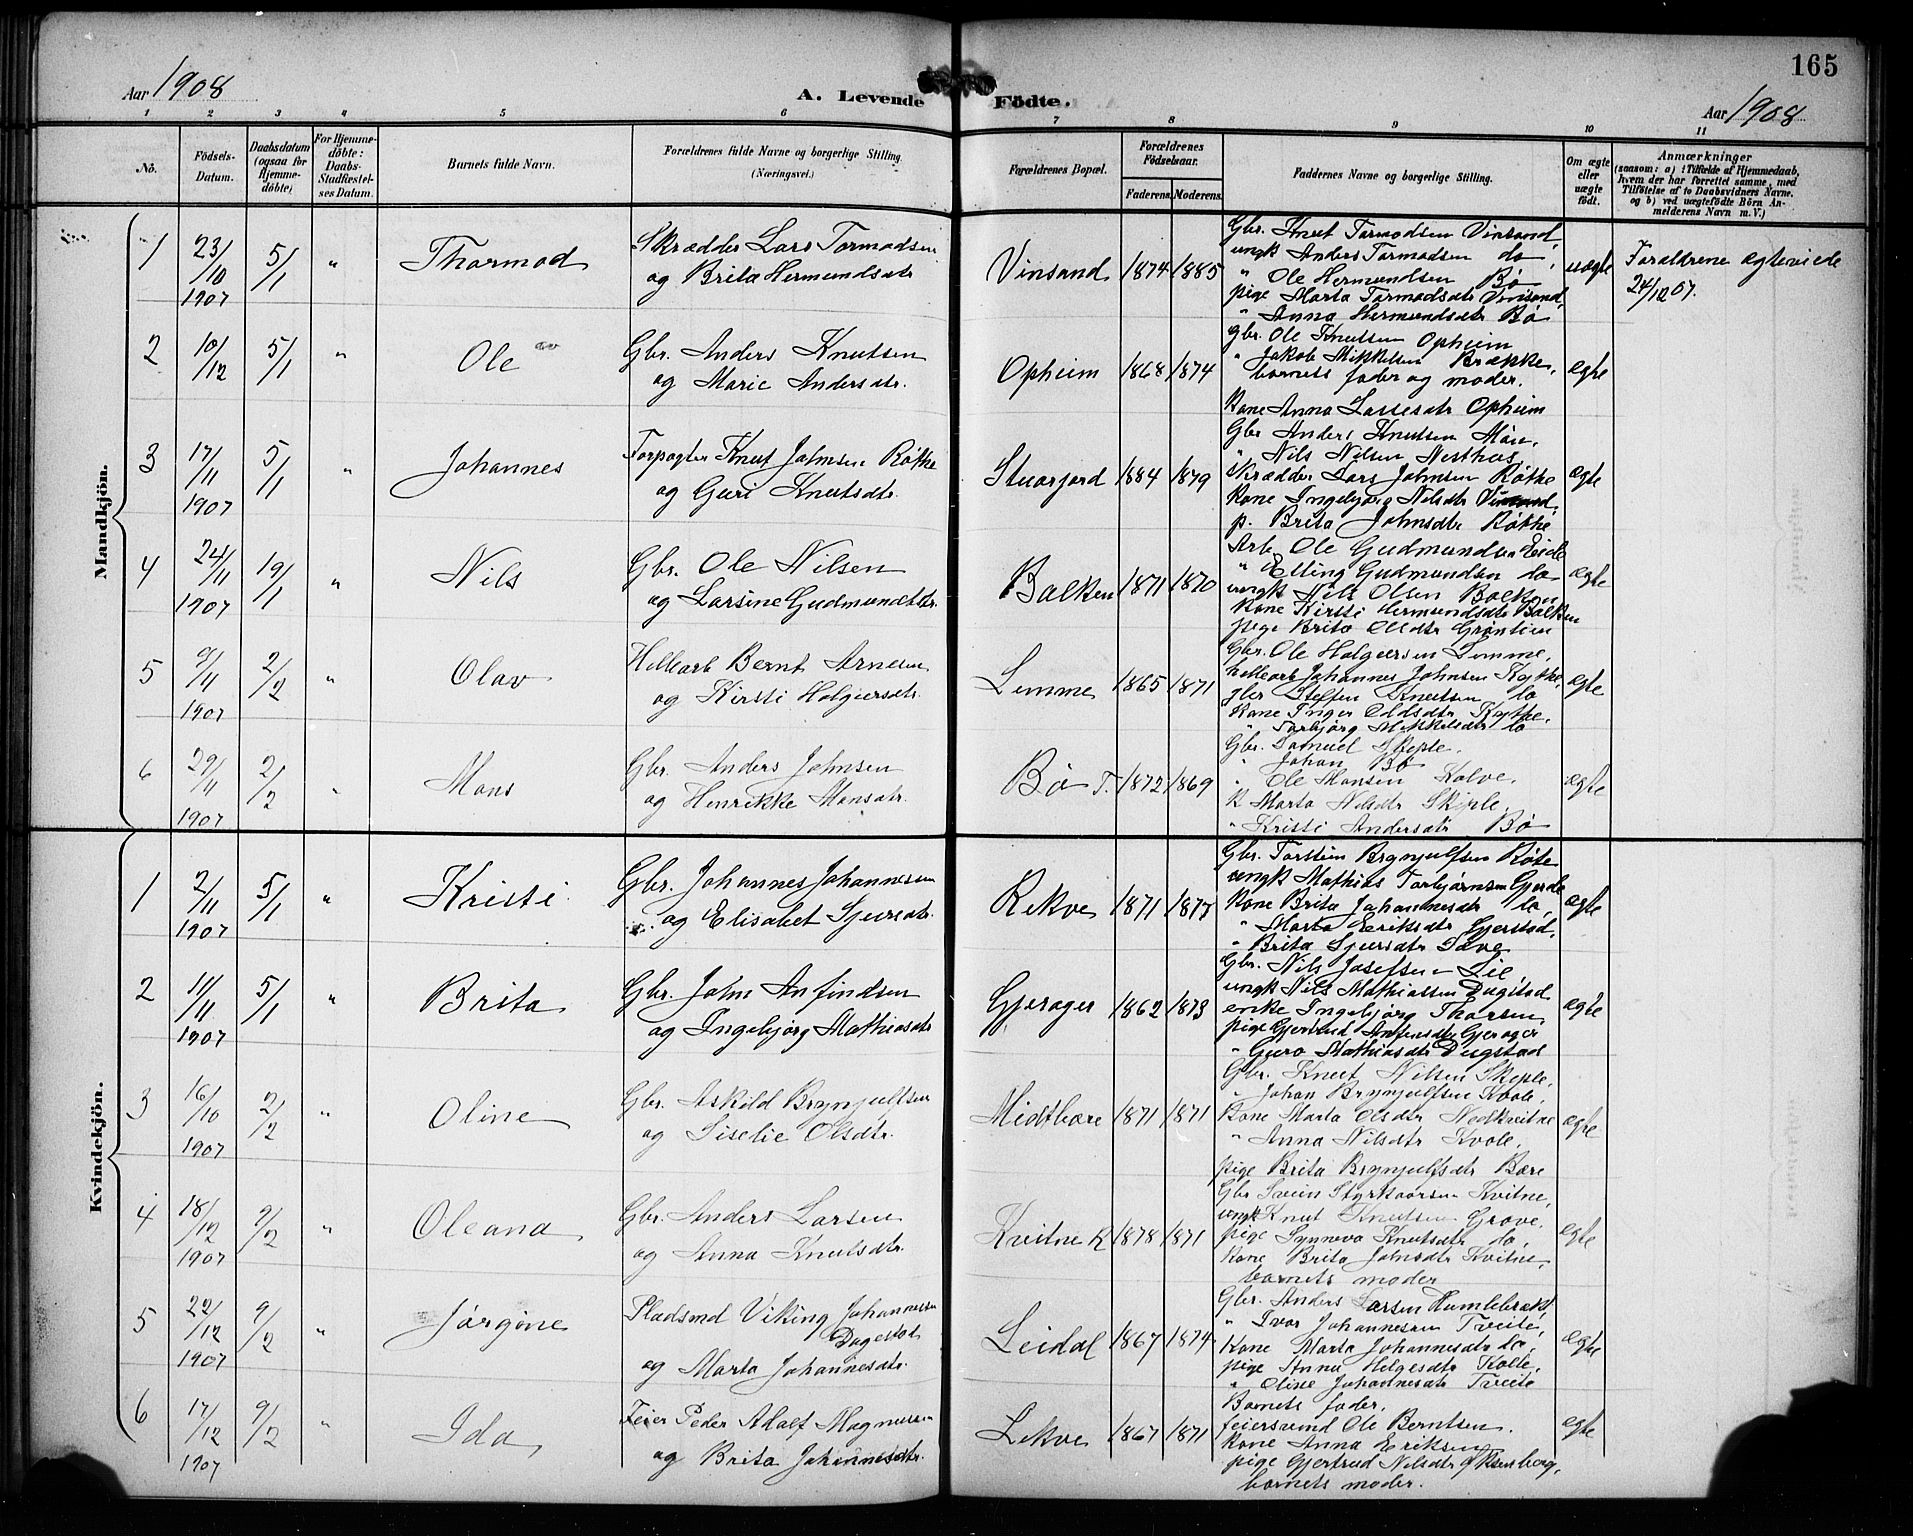 165
Aar 1908
A. Levende Födte.
Aar 1908
1 2 3 4 5 6 7 8 9 10 11
No.
Födsels-Datum.
Daabsdatum (ogsaa for Hjemmedöbte)
For Hjemmedöbte: Daabs-Stadfæstelses Datum.
Barnets fulde Navn.
Forældrenes fulde Navne og borgerlige Stilling (Næringsvei.)
Forældrenes Bopæl.
Forældrenes Födselsaar.
Faderens. Moderens.
Faddernes Navne og borgerlige Stilling.
Om ægte eller uægte födt.
Anmærkninger
(saasom: a) i Tilfælde af Hjemmedaab, hvem der har forrettet samme, med Tilföielse af to Daabsvidners Navne. og b) ved uægtefödte Börn Anmelderens Navn m. V.)
Mandkjön.
1 23/10 1907 5/1 " Thormod
Skrædder Lars Tormodsen
og Brita Hermundsdtr
Vinsand 1874 1885
Gbr. Knut Tormodsen Vinsand,
ungk Anders Tormodsen do,
" Ole Hermundsen Bø
pige Marta Tormodsdtr Vinsand,
" Anna Hermundsdtr Bø
uægte
Forældrene ægteviede
24/12 07.
2 10/12 5/1 " Ole
Gbr. Anders Knutsen
og Marie Andersdtr.
Opheim 1868 1874
Gbr. Ole Knutsen Opheim
" Jakob Mikkelsen Brække,
barnets fader og moder.
Kone Anna Lassesdtr Opheim
ægte
3 17/11 1907 5/1 " Johannes
Forpagter Knut Johnsen Røthe
og Guri Knutsdtr.
1884 1879
Gbr Anders Knutsen Møn,
" Nils Nilsen Nesthus
Skrædder Lars Johnsen Røthe
Kone Ingebjørg Nilsdtr Vinsand,
p. Brita Johnsdtr Røthe
ægte
4 24/11 1907 19/1 " Nils
Gbr. Ole Nilsen
og Larsine Gudmundsdtr.
Balken 1871 1870
Arb. Ole Gudmundsen Eide
" Elling Gudmundsen do
ungk Nils Olsen Balken
Kone Kirsti Hermundsdtr Balken
pige Brita Olsdtr Grønlien
ægte
5 9/11 1907 2/2 " Olav
Hellearb Bernt Arnesen
og Kirsti Holgersdtr.
Lemme 1865 1871
Gbr. Ole Holgersen Lemme,
hellearb Johannes Johnsen Kythe,
gbr Steffen Knutsen do
Kone Inger Oddsdtr Kythe,
" Torbjørg Mikkelsdtr do
ægte
6 29/11 1907 2/2 " Mons
Gbr. Anders Johnsen
og Henrikke Monsdtr.
Bø T. 1872 1869
Gbr. Samuel Skjple.
" Johan Bø
" Ole Monsen Kolve.
K Marta Nilsdtr Skjple.
" Kristi Andersdtr Bø
ægte
Kvindekjön.
1 2/11 1907 5/1 " Kristi
Gbr. Johannes Johannessen
og Elisabet Sjursdtr.
Rekve 1871 1877
Gbr. Torstein Brynjulfsen Røte
ungk Mathias Torbjørnsen Gjerde
Kone Brita Johannesdtr do,
" Marta Eriksdtr Gjerstad,
" Brita Sjursdtr Tave
ægte
2 11/11 1907 5/1 " Brita
Gbr. John Anfindsen
og Ingebjørg Mathiasdtr
Gjerager 1862 1873
Gbr. Nils Josefsen Lie,
ungk Nils Mathiassen Dugstad
enke Ingebjørg Thorsen,
pige Gjertrud Anfinsdtr Gjerager
" Guro Mathiasdtr Dugstad
ægte
3 16/10 1907 2/2 " Oline
Gbr. Askild Brynjulfsen
og Siselie Olsdtr.
Midtbære 1871 1871
Gbr. Knut Nilsen Skjple,
" Johan Brynjulfsen Kvale,
Kone Marta Olsdtr Nedkvitne
" Anna Nilsdtr Kvale,
pige Brita Brynjulfsdtr Bære
ægte
4 18/12 1907 9/2 " Oleana
Gbr. Anders Larsen
og Anna Knutsdtr.
Kvitne R 1878 1871
Gbr Svein Styrkaarsen Kvitne,
ungk Knut Knutsen Grove,
pige Synneva Knutsdtr do,
Kone Brita Johnsdtr Kvitne,
barnets moder
ægte
5 22/12 1907 9/2 " Jørgine
Pladsmd Viking Johannessen
Dagestad
og Marta Johannesdtr.
Leidal 1867 1874
Gbr. Anders Larsen Humlebrekk,
" Ivar Johannessen Tveite,
Kone Marta Johannesdtr do,
pige Anna Helgesdtr Kolle,
" Oline Johannesdtr Tveite
ægte
6 17/12 1907 9/2 " Ida
Feier Peder Adolf Magnussen
og Brita Johannesdtr.
Lekve 1867 1871
Barnets fader,
feiersvend Ole Berntsen.
Kone Anna Eriksen
pige Gjertrud Nilsdtr
barnets moder.
ægte